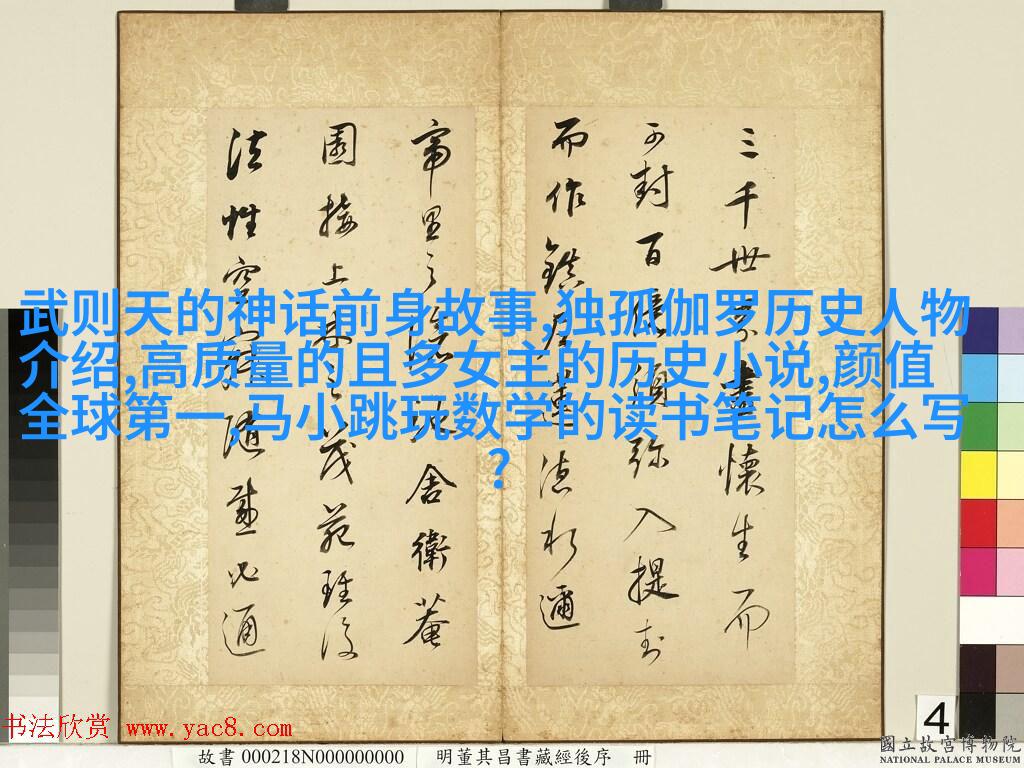 三千世界盡懷生而
可封百億須彌入提封
而作鎮蓮邇
帝里之舍衛菴
園接上林之茂苑理復
法性空寂隨感必通
武则天的神话前身故事,独孤伽罗历史人物
介绍,高质量的且多女主的历史小说,颜值
全球第一,马小跳玩数学的读书笔记怎么写
？
4
书法欣赏 www.yac8.com
故書 000218N000000000 明董其昌書藏經後序 冊
國立故宮博物院
NATIONAL PALACE MUSEUM